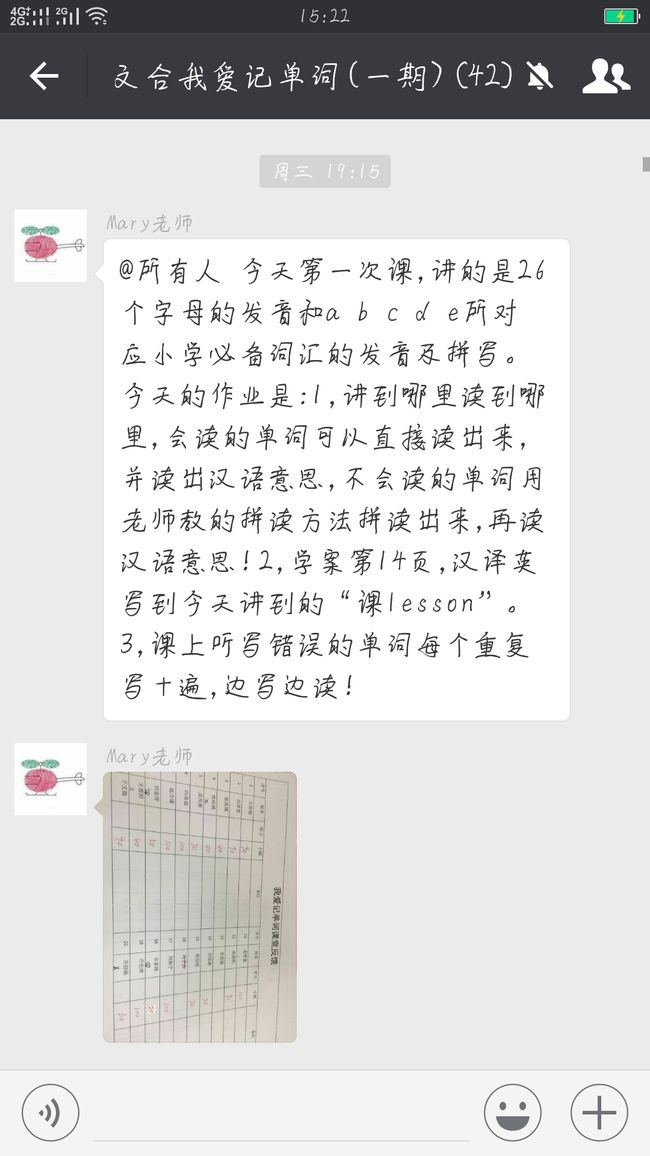 4G+ 2G 2G
15:22
文合我爱记单词(一期)(42)
周三 19:15
Mary老师
@所有人 今天第一次课,讲的是26
个字母的发音和a b c d e所对
应小学必备词汇的发音及拼写。
今天的作业是:1,讲到哪里读到哪
里,会读的单词可以直接读出来,
并读出汉语意思,不会读的单词用
老师教的拼读方法拼读出来,再读
汉语意思!2,学案第14页,汉译英
写到今天讲到的“课lesson”。
3,课上听写错误的单词每个重复
写十遍,边写边读!
Mary老师
我爱记单词课堂反馈